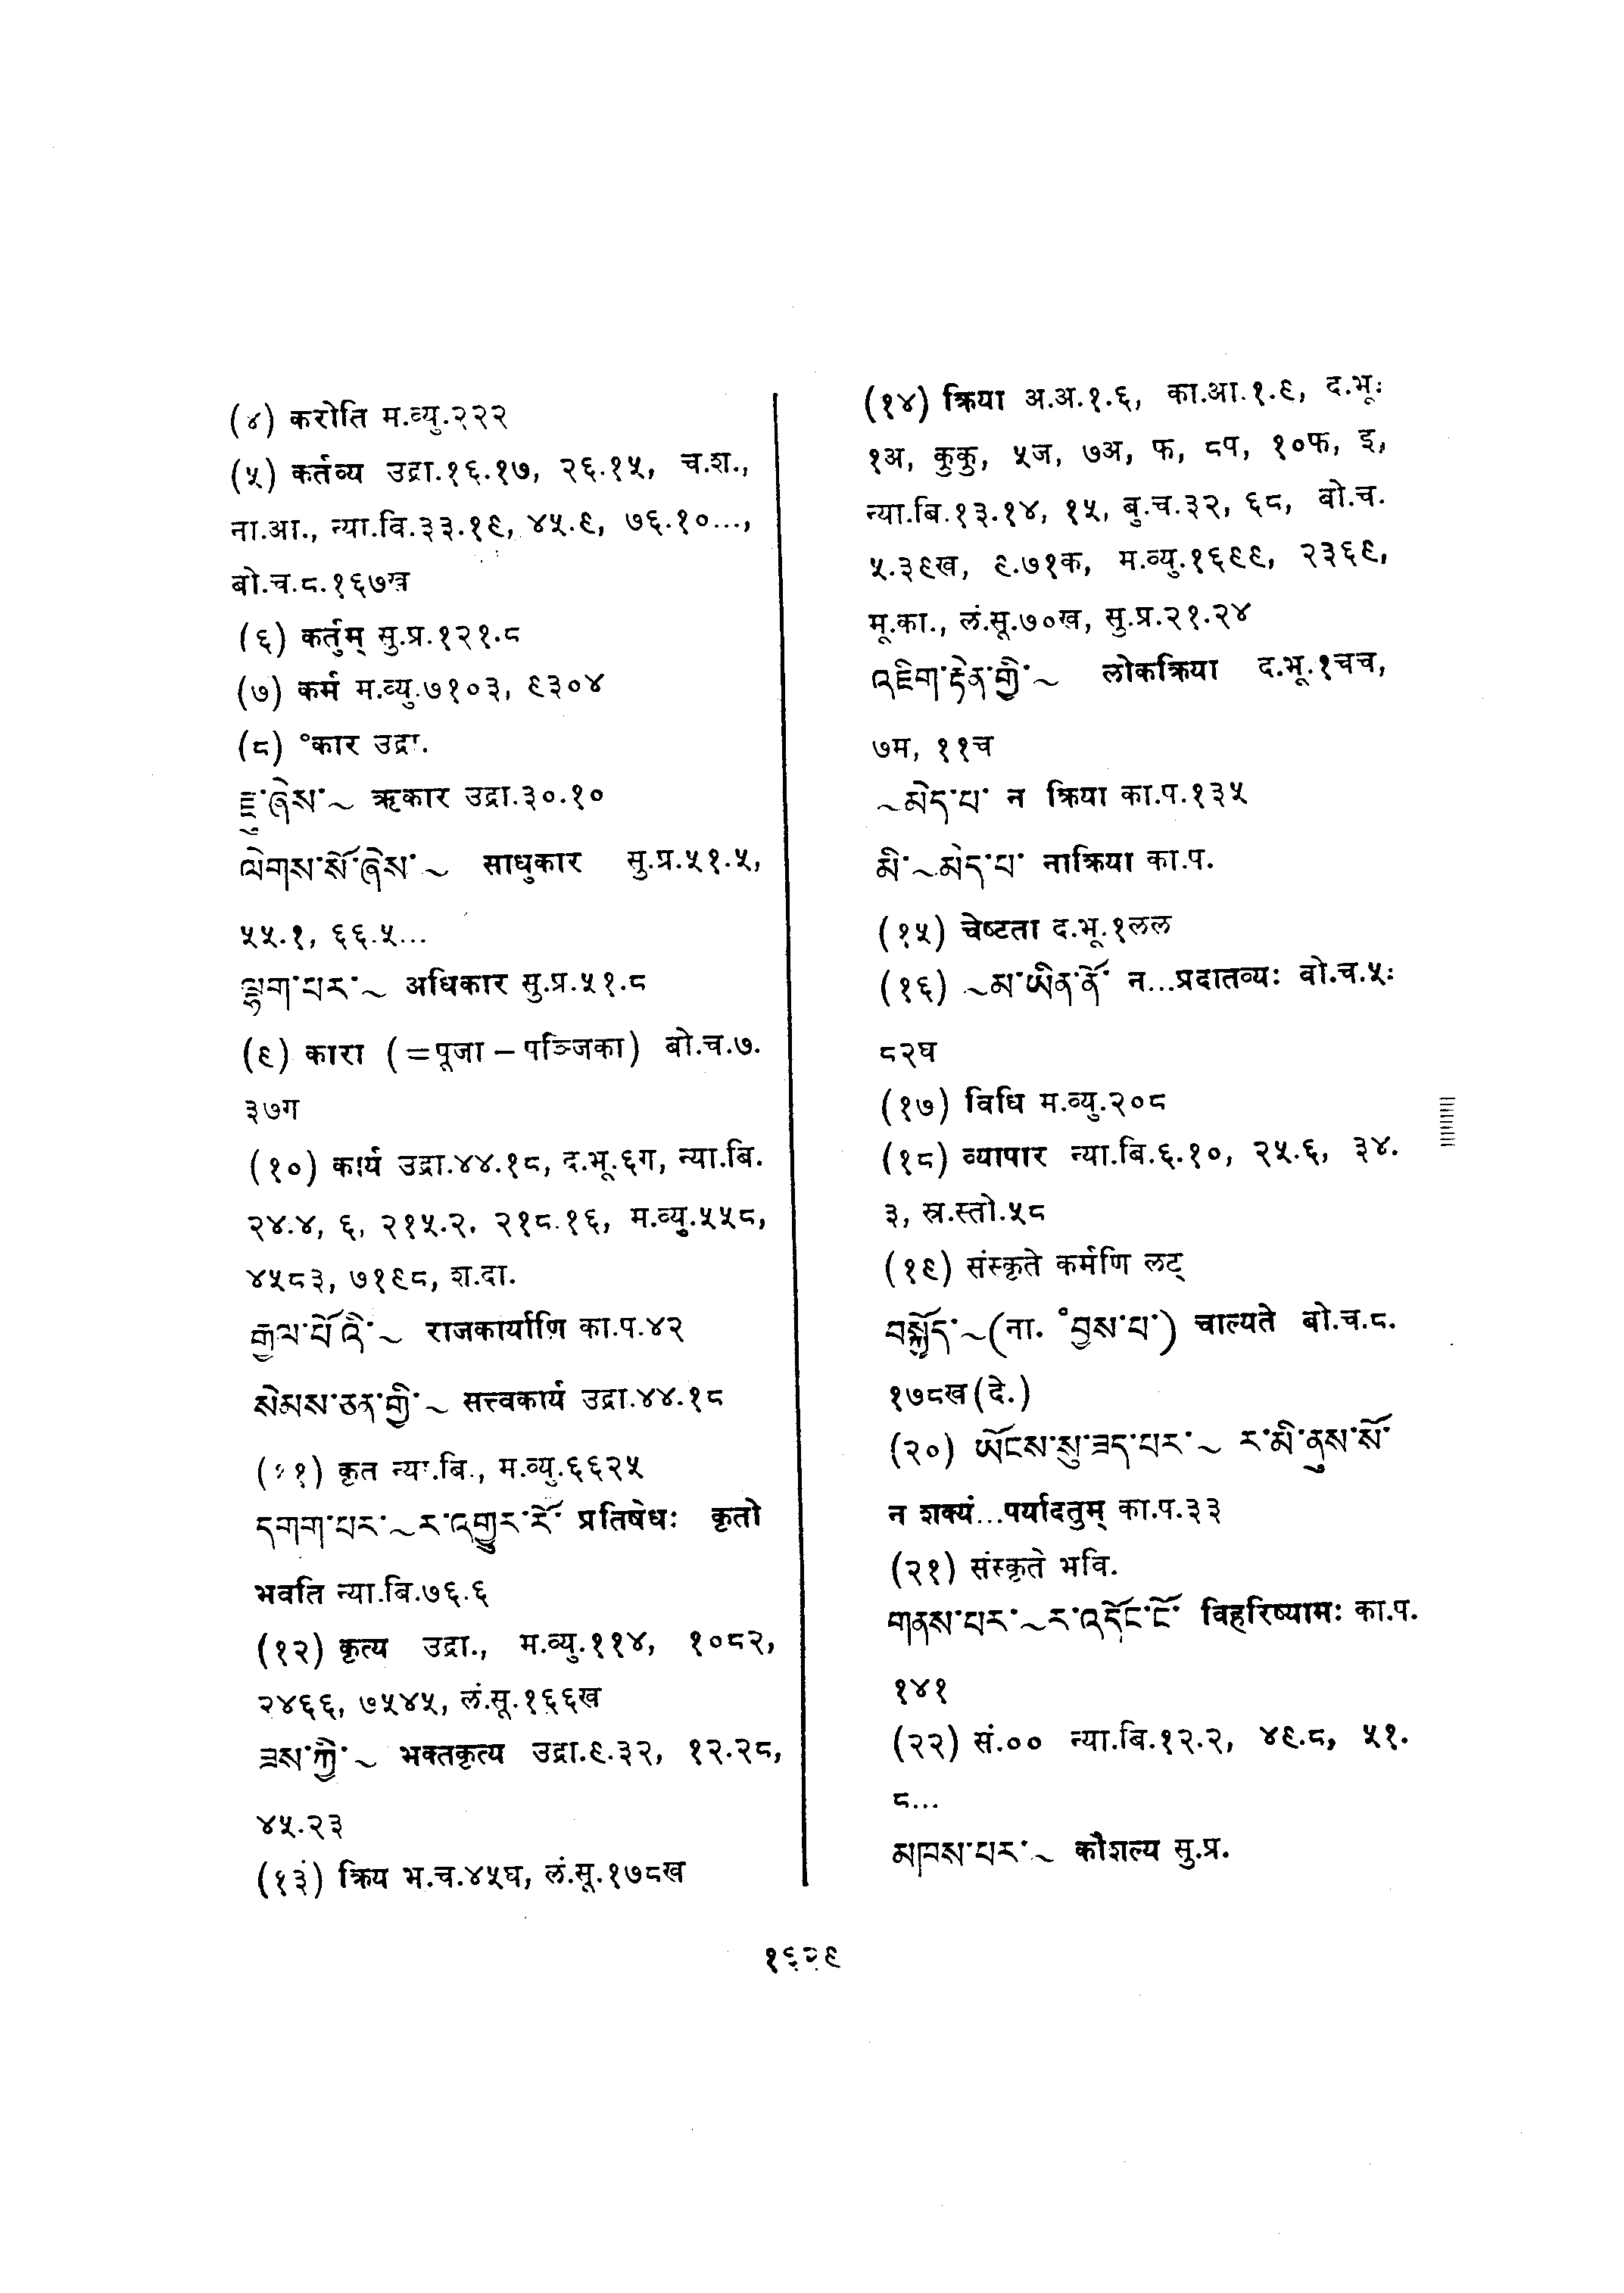 (४) करोति म.व्यु.२२२
(५) कर्तव्य उद्रा.१६.१७, २६.१५, च.श.,
ना.आ., न्या.वि.३३.१९, ४५.९, ७६.१०...,
बो.च.८.१६७ख
(६) कर्तुम् सु.प्र.१२१.८
(७) कर्म म.व्यु.७१०३, ९३०४
(८) °कार उद्रा.
ཛྲྀ་ཞེས་~ ऋकार उद्रा.३०.१०
ལེགས་སོ་ཞེས་~ साधुकार सु.प्र.५१.५,
५५.१, ६६.५...
ལྷག་པར་~ अधिकार सु.प्र.५१.८
(९) कारा (=पूजा – पञ्जिका) बो.च.७.
३७ग
(१०) कार्य उद्रा.४४.१८, द.भू.६ग, न्या.बि.
२४.४, ६, २१५.२, २१८.१६, म.व्यु.५५८,
४५८३, ७१९८, श.दा.
རྒྱལ་པོའི་~ राजकार्याणि का.प.४२
སེམས་ཅན་གྱི་~ सत्त्वकार्य उद्रा.४४.१८
(११) कृत न्या.बि., म.व्यु.६६२५
དགག་པར་~ར་འགྱུར་རོ་ प्रतिषेधः कृतो
भवति न्या.बि.७६.६
(१२) कृत्य उद्रा., म.व्यु.११४, १०८२,
२४६६, ७५४५, लं.सू.१६६ख
ཟས་ཀྱི་~ भक्तकृत्य उद्रा.९.३२, १२.२८,
४५.२३
(१३) क्रिय भ.च.४५घ, लं.सू.१७८ख
(१४) क्रिया अ.अ.१.६, का.आ.१.९, द.भू.
१अ, कुकु, ५ज, ७अ, फ, ८प, १०फ, इ,
न्या.बि.१३.१४, १५, बु.च.३२, ६८, बो.च.
५.३९ख, ९.७१क, म.व्यु.१६९९, २३६९,
मू.का., लं.सू.७०ख, सु.प्र.२१.२४
འཇིག་རྟེན་གྱི་~ लोकक्रिया द.भू.१चच,
७म, ११च
~མེད་པ་ न क्रिया का.प.१३५
མི་~མེད་པ་ नाक्रिया का.प.
(१५) चेष्टता द.भू.१लल
(१६) ~མ་ཡིན་ནོ་ न...प्रदातव्यः बो.च.५.
८२घ
(१७) विधि म.व्यु.२०८
(१८) व्यापार न्या.बि.६.१०, २५.६, ३४.
३, स्र.स्तो.५८
(१९) संस्कृते कर्मणि लट्
བསྐྱོད་~(ना. °བྱས་པ་) चाल्यते बो.च.८.
१७८ख(दे.)
(२०) ཡོངས་སུ་ཟད་པར་~ ར་མི་ནུས་སོ་
न शक्यं...पर्यादतुम् का.प.३३
(२१) संस्कृते भवि.
གནས་པར་~ར་འདོང་ངོ་ विहरिष्यामः का.प.
१४१
(२२) सं.०० न्या.बि.१२.२, ४९.८, ५१.
८...
མཁས་པར་~ कौशल्य सु.प्र.
१६२९